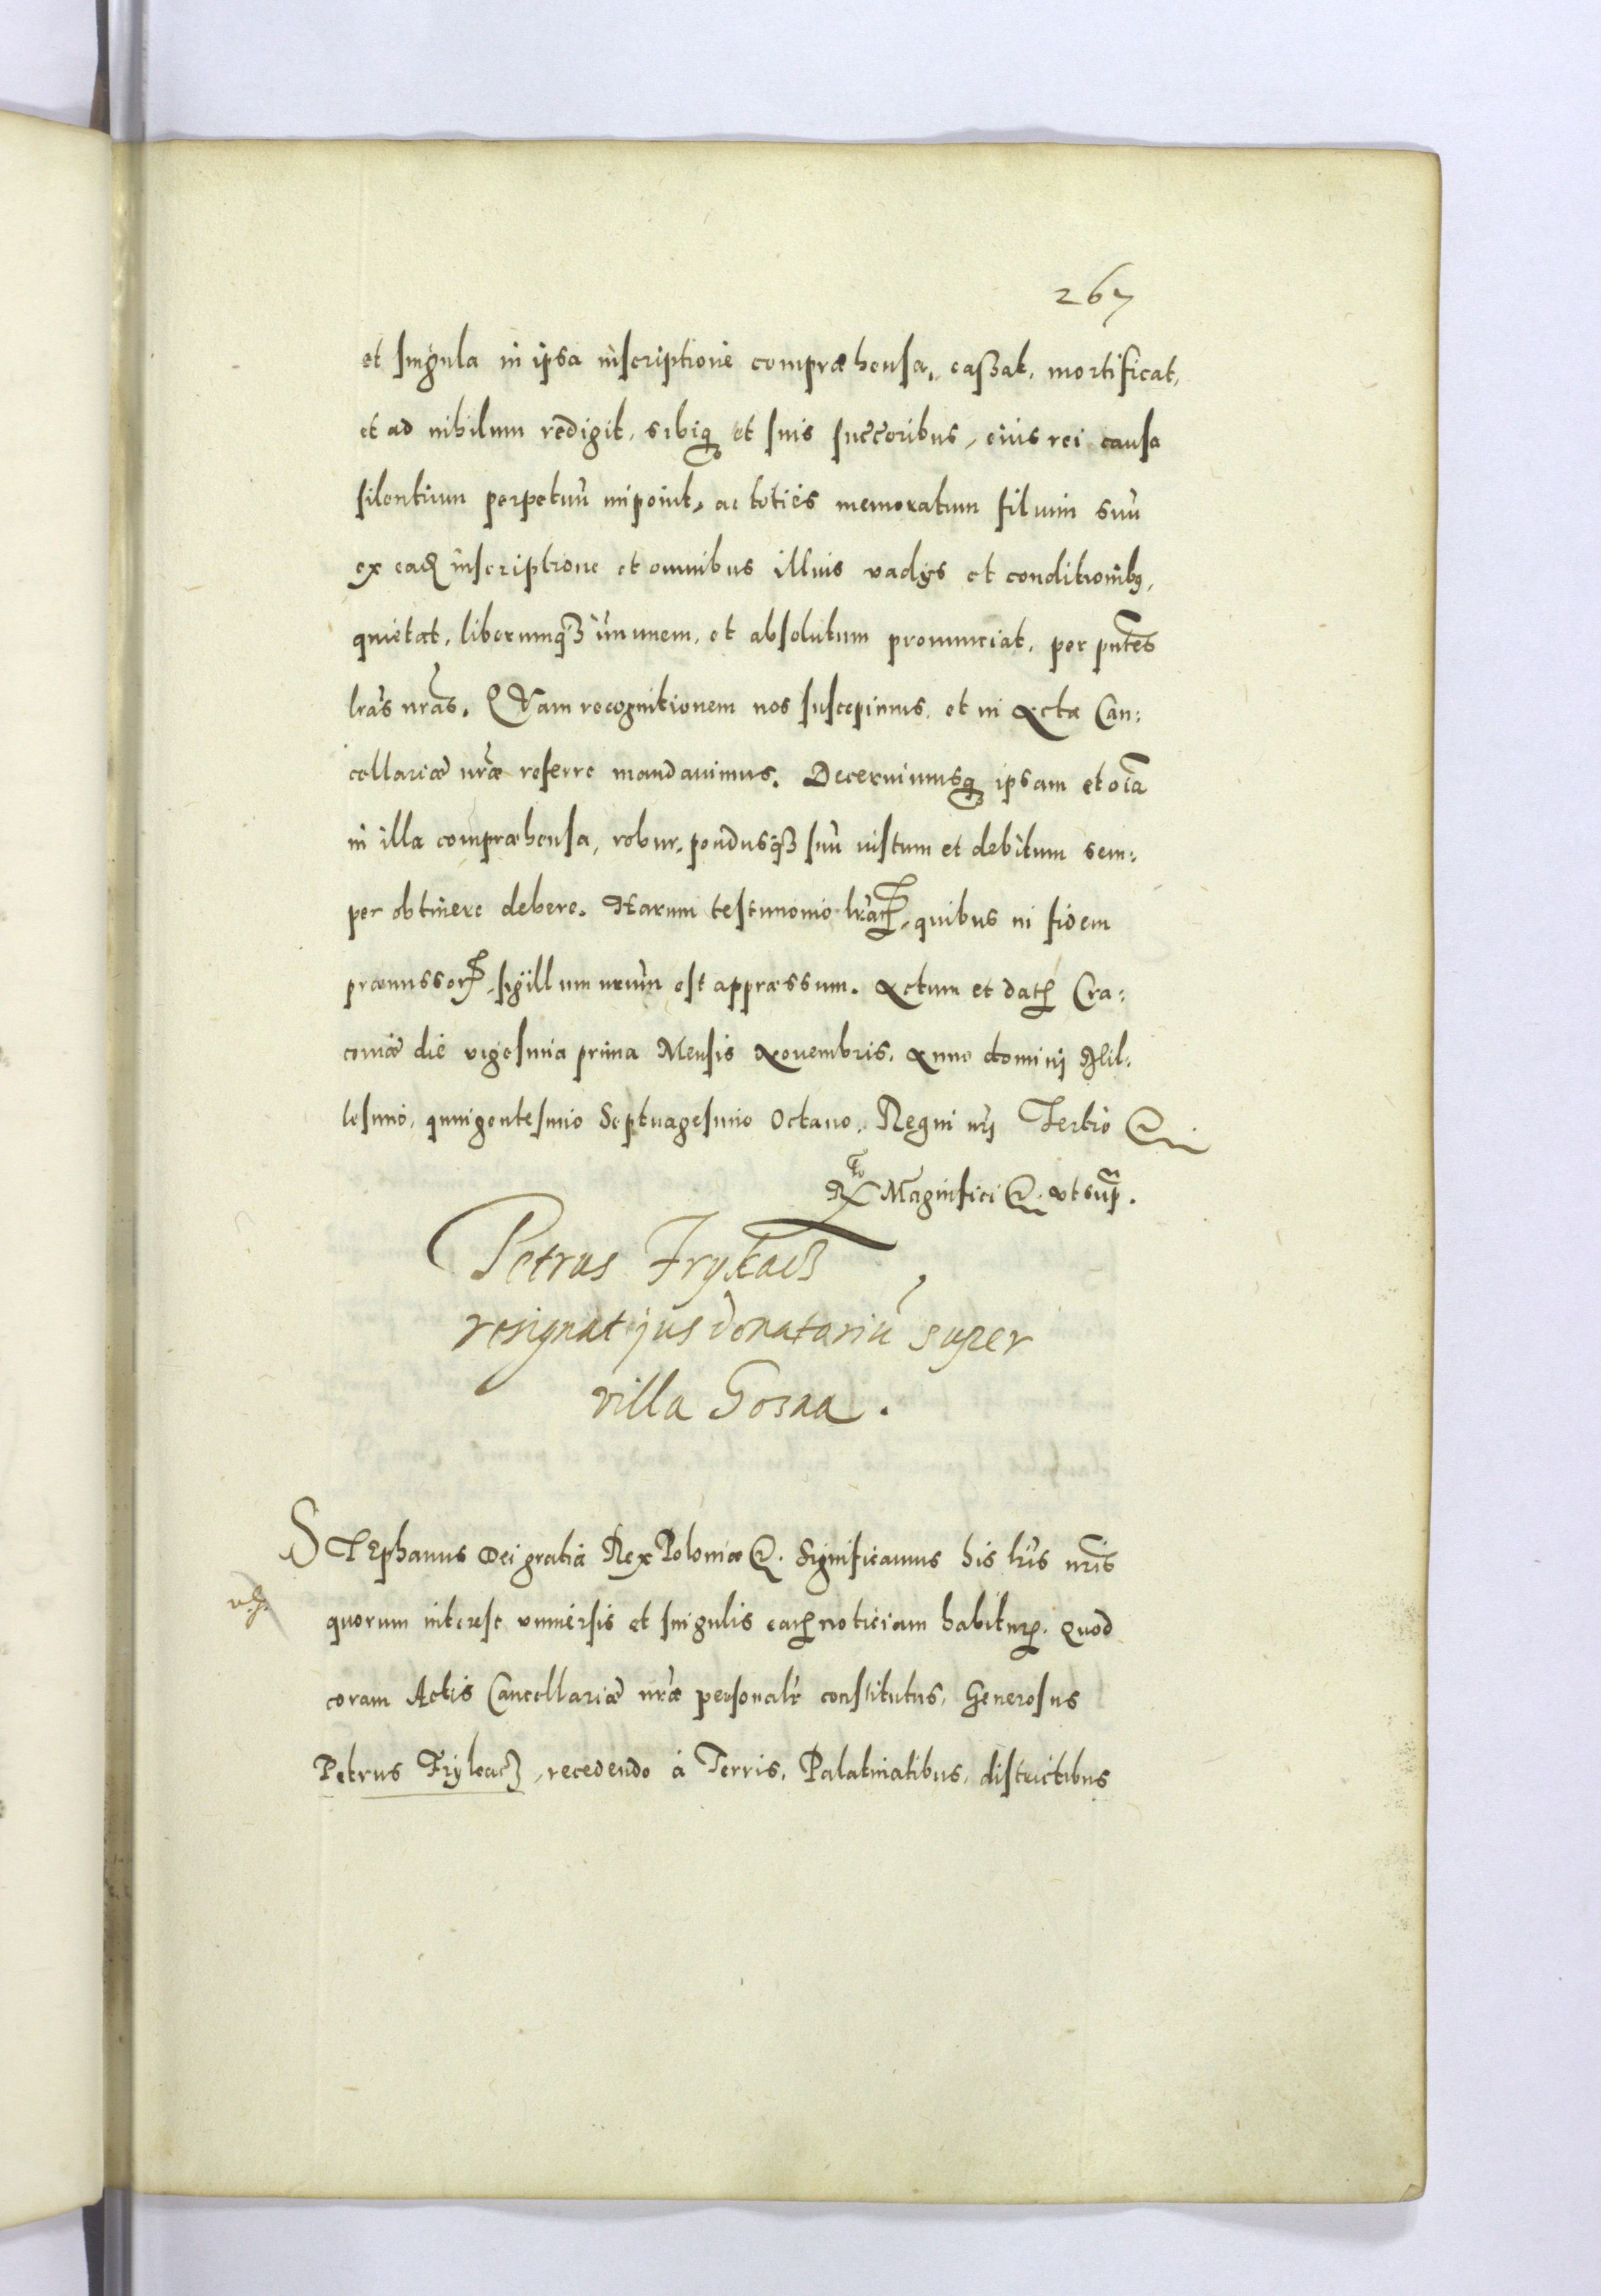 267
et singula in ipsa inscriptione compræhensa, cassat, mortificat,
et ad nihilum redigit, sibiq3 et suis succcoribus, eius rei causa
silentium perpetuũ imponit, ac toties memoratum filium suũ
ex eadē inscriptione et omnibus illius vadijs et conditionib9,
quietat, liberumq3 immunem, et absolutum pronunciat, per pñtes
lr̃as nr̃as. QVam recognitionem nos suscepimus, et in Acta Can:
cellariæ nr̃æ referre mandauimus. Decernimusq3 ipsam et oĩa
in illa compræhensa, robur, pondusq3 suũ iustum et debitum sem:
per obtinere debere. Harum testimonio lr̃aꝝ, quibus in fidem
præmissorꝝ, sigillum nr̃um est appræssum. Actum et datū Cra:
couiæ die vigesima prima Mensis Nouembris. Anno domini Mil:
lesimo, quingentesimo Septuagesimo Octauo. Regni nr̃i Tertio &c
Rto Magnifici &c. vt sup̃.
Petrus Frykacz
resignat jus donatariũ super
villa Gosna.
STEphanus Dei gratia Rex Poloniæ &c. Significamus his lr̃is nr̃is
quorum interest vniuersis et singulis eaꝝ noticiam habiturꝭ. Quod
coram Actis Cancellariæ nr̃æ personalr̃ constitutus, Generosus
Petrus Frykacz, recedendo à Terris, Palatinatibus, districtibus